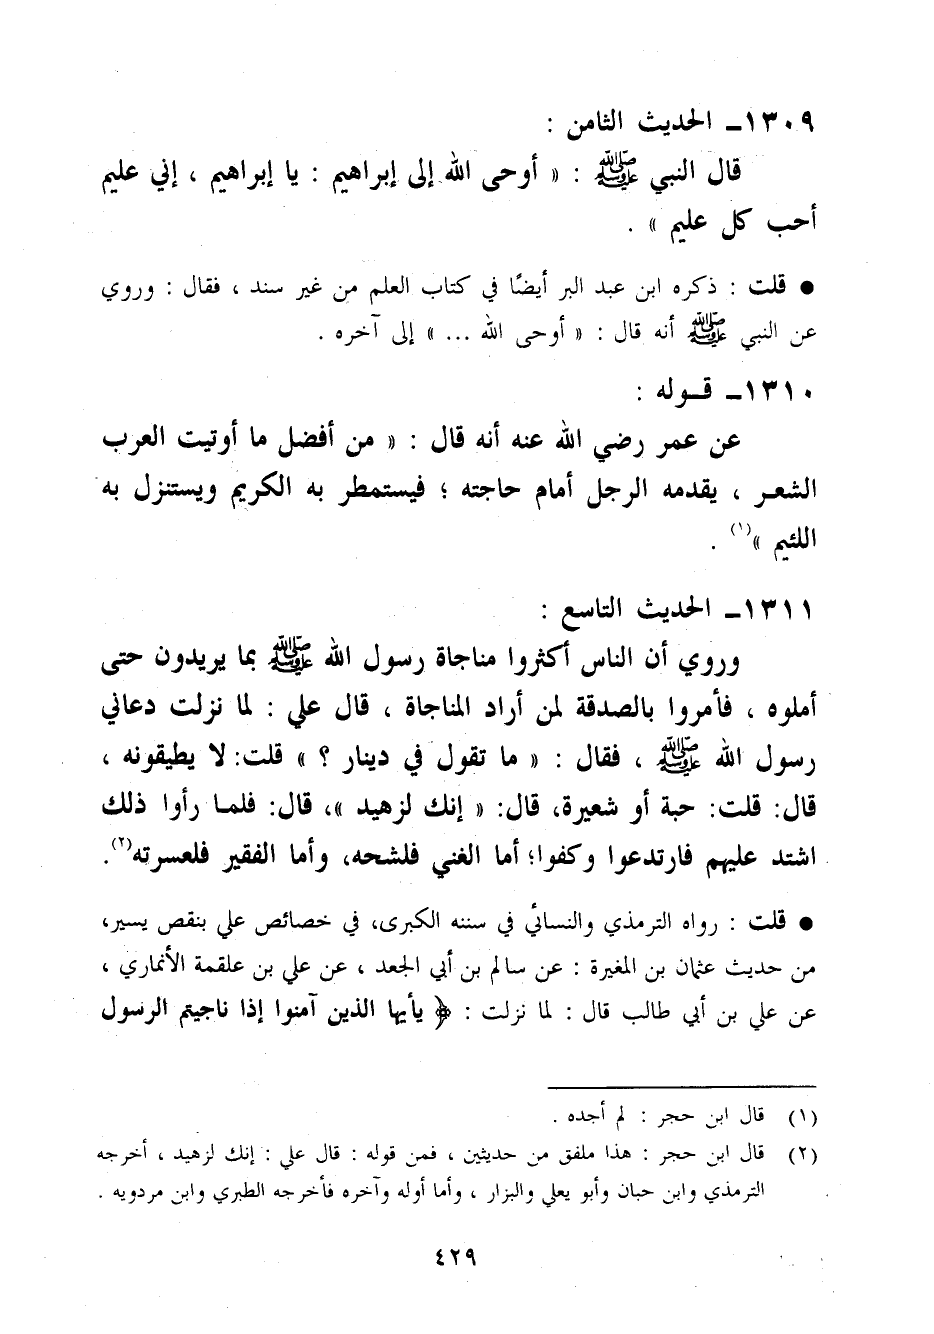 ١٣٠٩ـ الحديث الثامن :
قال النبي ﷺ : « أوحى الله إلى إبراهيم : يا إبراهيم ، إني عليم
أحب كل عليم » .
● قلت : ذكره ابن عبد البر أيضًا في كتاب العلم من غير سند ، فقال : وروي
عن النبي ﷺ أنه قال : « أوحى الله ... » إلى آخره .
١٣١٠ـ قـوله :
عن عمر رضي الله عنه أنه قال : « من أفضل ما أوتيت العرب
الشعـر ، يقدمه الرجل أمام حاجته ؛ فيستمطر به الكريم ويستنزل به
اللئيم »(١) .
١٣١١ـ الحديث التاسع :
وروي أن الناس أكثروا مناجاة رسول الله ﷺ بما يريدون حتى
أملوه ، فأمروا بالصدقة لمن أراد المناجاة ، قال علي : لما نزلت دعاني
رسول الله ﷺ ، فقال : « ما تقول في دينار ؟ » قلت: لا يطيقونه ،
قال: قلت: حبة أو شعيرة، قال: « إنك لزهيد »، قال: فلمـا رأوا ذلك
اشتد عليهم فارتدعوا وكفوا؛ أما الغني فلشحه، وأما الفقير فلعسرته(٢).
● قلت : رواه الترمذي والنسائي في سننه الكبرى، في خصائص علي بنقص يسير،
من حديث عثمان بن المغيرة : عن سالم بن أبي الجعد ، عن علي بن علقمة الأنماري ،
عن علي بن أبي طالب قال : لما نزلت : ﴿ يأيها الذين آمنوا إذا ناجيتم الرسول
(١) قال ابن حجر : لم أجده .
(٢) قال ابن حجر : هذا ملفق من حديثين ، فمن قوله : قال علي : إنك لزهيد ، أخرجه
الترمذي وابن حبان وأبو يعلي والبزار ، وأما أوله وآخره فأخرجه الطبري وابن مردويه .
٤٢٩